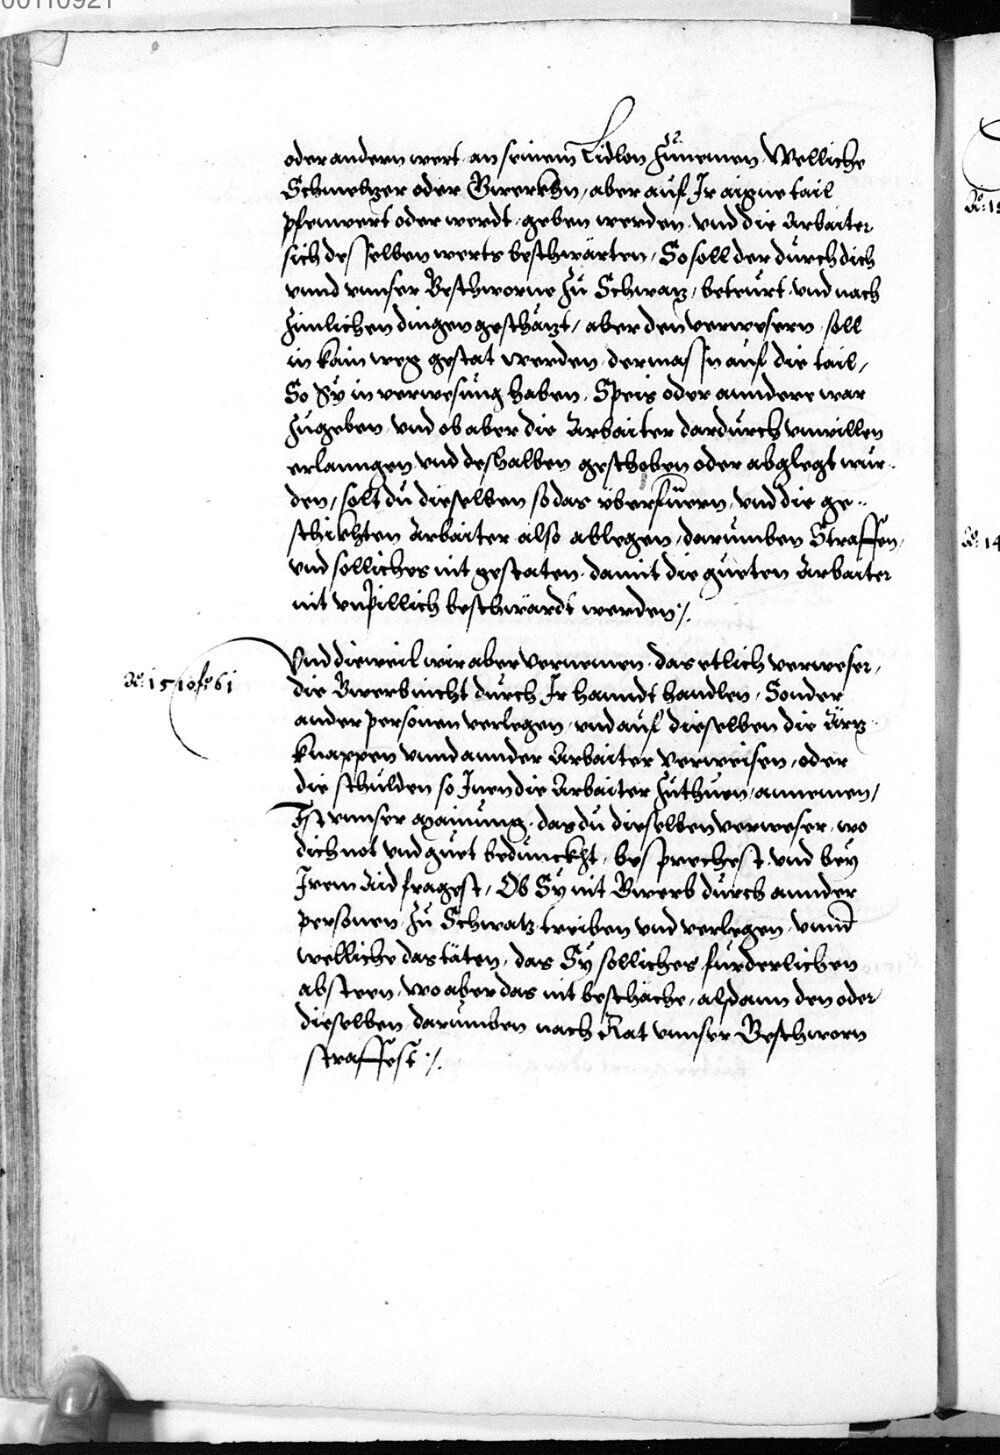 00110921
oder andern wert an seinem Lidlon zunemen. Welliche
Schmeltzer oder Gwerckhn, aber auf Ir aigne tail
pfenwert oder werdt, geben werden, vnd die Arbaiter
sich desselben werts beschwärten, So soll der durch dich
vnnd vnnser Beschworne zu Schwatz, beteurt, vnd nach
zimlichen dingen geschätzt, aber den verwesern, soll
in kain weg gestat werden, dermassn auf die tail,
So Sy in verwesung haben, Speis oder anndere war
zugeben, vnd ob aber die Arbaiter dardurch vnwillen
erlanngen, vnd deshalben geschoben oder abglegt wur-
den, solt du dieselben so das überfuern, vnd die ge-
schickhten Arbaiter also ablegen, darumben Straffen,
vnd solliches nit gestaten, damit die gueten Arbaiter
nit vnpillich beschwärdt werden ./.
Vnd dieweil wir aber vernemen, das etlich verweser,
die Gwerb nicht durch Ir hanndt handlen, Sonder
ander personen verlegen, vnd auf dieselben die Ärtz-
knappen vnnd annder Arbaiter verweisen, oder
die schulden so Inen die Arbaiter zuthuen, annemen,
Ist vnnser mainung, das du dieselben verweser, wo
dich not vnd guet bedunckht, besprechest, vnd bey
Irem Aid fragest, Ob Sy nit Gwerb durch annder
personen, zu Schwatz treiben vnd verlegen, vnnd
welliche das täten, das Sy solliches furderlichen
absteen, wo aber das nit beschäche, alsdann den oder
dieselben darumben nach Rat vnnser Beschworn
straffest ./.